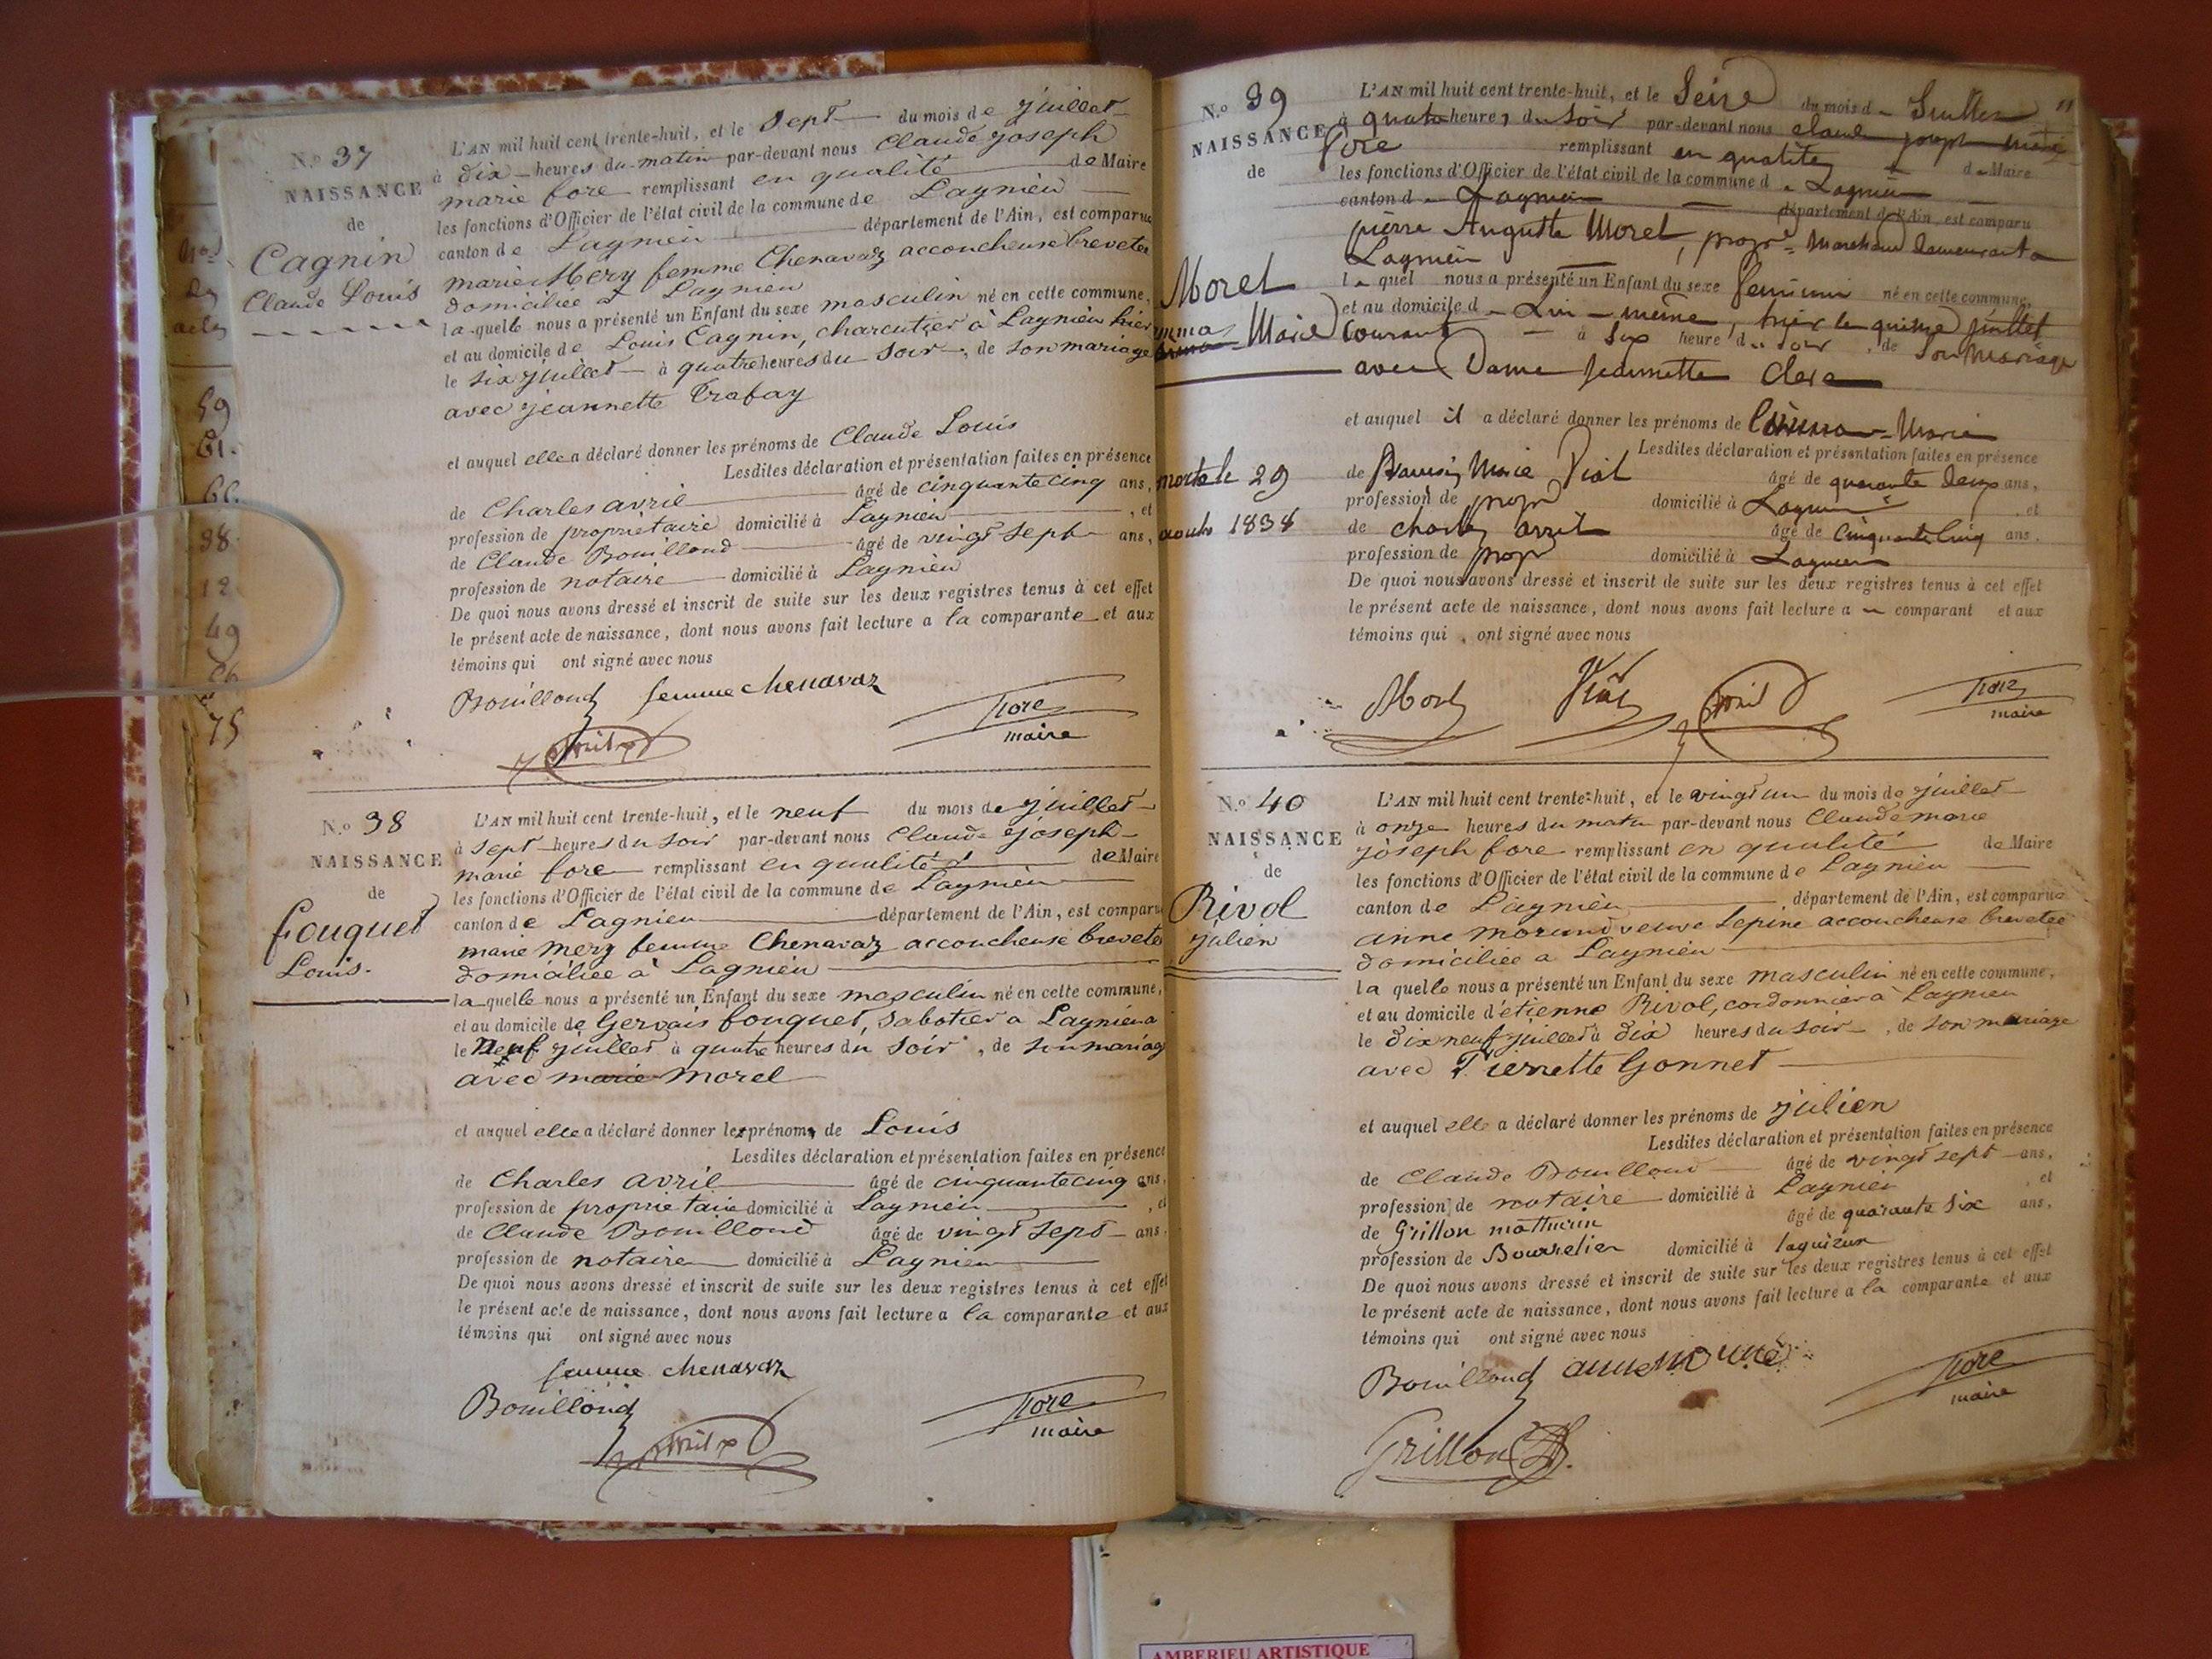 N.º 37
NAISSANCE
de
Cagnin
Claude Louis
L'AN mil huit cent trente-huit, et le sept du mois de juillet
à dix heures du matin par-devant nous Claude joseph
marie fore remplissant en qualité de Maire
les fonctions d'Officier de l'état civil de la commune de Lagnieu
canton de Lagnieu département de l'Ain, est comparue
marie Mery femme Chenavaz accoucheuse brevetée
domiciliée à Lagnieu
laquelle nous a présenté un Enfant du sexe masculin né en cette commune,
et au domicile de Louis Cagnin, charcutier à Lagnieu hier
le six juillet à quatre heures du soir, de son mariage
avec jeannette Trafay
et auquel elle a déclaré donner les prénoms de Claude Louis
Lesdites déclaration et présentation faites en présence
de Charles avril âgé de cinquante cinq ans,
profession de propriétaire domicilié à Lagnieu, et
de Claude Bouilloud âgé de vingt sept ans,
profession de notaire domicilié à Lagnieu
De quoi nous avons dressé et inscrit de suite sur les deux registres tenus à cet effet
le présent acte de naissance, dont nous avons fait lecture a la comparante et aux
témoins qui ont signé avec nous
Bouilloud femme chenavaz
fore
maire
avril
N.º 38
NAISSANCE
de
fouquet
Louis.
L'AN mil huit cent trente-huit, et le neuf du mois de juillet
à sept heures du soir par-devant nous Claude joseph
marie fore remplissant en qualité de Maire
les fonctions d'Officier de l'état civil de la commune de Lagnieu
canton de Lagnieu département de l'Ain, est comparu
marie mery femme Chenavaz accoucheuse brevetée
domiciliée à Lagnieu
laquelle nous a présenté un Enfant du sexe masculin né en cette commune,
et au domicile de Gervais fouquet, sabotier a Lagnieu a
le Neuf juillet à quatre heures du soir, de son mariage
avec marie morel
et auquel elle a déclaré donner les prénoms de Louis
Lesdites déclaration et présentation faites en présence
de Charles avril âgé de cinquante cinq ans,
profession de proprietaire domicilié à Lagnieu, et
de Claude Bouilloud âgé de vingt sept ans,
profession de notaire domicilié à Lagnieu
De quoi nous avons dressé et inscrit de suite sur les deux registres tenus à cet effet
le présent acte de naissance, dont nous avons fait lecture a la comparante et aux
témoins qui ont signé avec nous
femme chenavaz
Bouilloud
fore
maire
avril
N.º 39
NAISSANCE
de
Morel
Marie
morte le 29
aoult 1838
L'AN mil huit cent trente-huit, et le Seize du mois d Juillet
à quatre heures du soir par-devant nous claude joseph marie
fore remplissant en qualité de Maire
les fonctions d'Officier de l'état civil de la commune de Lagnieu
canton de Lagnieu département de l'Ain, est comparu
pierre Auguste Morel, propre Marchand demeurant a
Lagnieu
lequel nous a présenté un Enfant du sexe feminin né en cette commune,
et au domicile de Lui-même, hier le quinze juillet
courant à six heure du soir, de son mariage
avec Dame Jeannette Clere
et auquel il a déclaré donner les prénoms de Emma-Marie
Lesdites déclaration et présentation faites en présence
de Marie Vial âgé de quarante deux ans,
profession de propre domicilié à Lagnieu, et
de charles avril âgé de cinquante cinq ans.
profession de propre domicilié à Lagnieu
De quoi nous avons dressé et inscrit de suite sur les deux registres tenus à cet effet
le présent acte de naissance, dont nous avons fait lecture a u comparant et aux
témoins qui ont signé avec nous
Morel Vial avril fore
maire
N.º 40
NAISSANCE
de
Rivol
julien
L'AN mil huit cent trente-huit, et le vingt un du mois de juillet
à onze heures du matin par-devant nous Claude marie
joseph fore remplissant en qualité de Maire
les fonctions d'Officier de l'état civil de la commune de Lagnieu
canton de Lagnieu département de l'Ain, est comparue
anne morund veuve Lepine accoucheuse brevetée
domiciliée a Lagnieu
la quelle nous a présenté un Enfant du sexe masculin né en cette commune,
et au domicile d'étienne Rivol, cordonnier à Lagnieu
le dix neuf juillet à dix heures du soir, de son mariage
avec Pierrette Gonnet
et auquel elle a déclaré donner les prénoms de julien
Lesdites déclaration et présentation faites en présence
de Claude Bouilloud âgé de vingt sept ans,
profession de notaire domicilié à Lagnieu, et
de Grillon mathurin âgé de quarante six ans,
profession de Bourrelier domicilié à
De quoi nous avons dressé et inscrit de suite sur les deux registres tenus à cet effet
le présent acte de naissance, dont nous avons fait lecture a la comparante et aux
témoins qui ont signé avec nous
Bouilloud
fore
maire
Grillon
AMBERIEU ARTISTIQUE